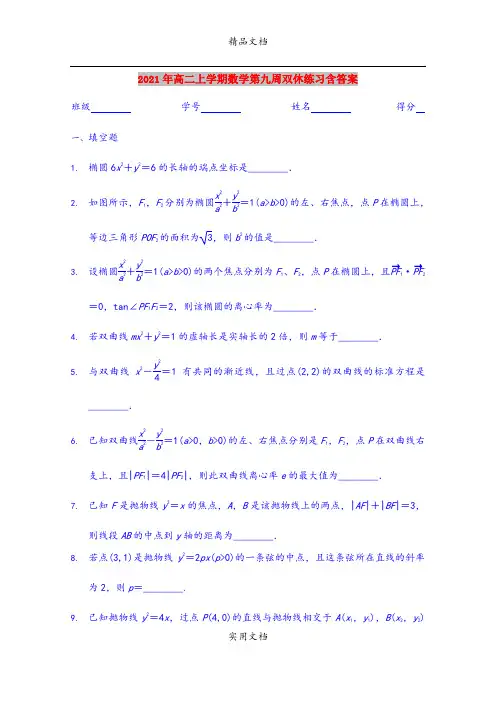 精品文档
2021年高二上学期数学第九周双休练习含答案
班级________ 学号________ 姓名________ 得分__
一、填空题
1. 椭圆6x²+y²=6的长轴的端点坐标是________.
2. 如图所示,F₁,F₂分别为椭圆x²/a²+y²/b²=1(a>b>0)的左、右焦点,点P在椭圆上,
等边三角形POF₂的面积为√3,则b²的值是________.
3. 设椭圆x²/a²+y²/b²=1(a>b>0)的两个焦点分别为F₁、F₂,点P在椭圆上,且PF₁→·PF₂→
=0,tan∠PF₁F₂=2,则该椭圆的离心率为________.
4. 若双曲线mx²+y²=1的虚轴长是实轴长的2倍,则m等于________.
5. 与双曲线x²-y²/4=1有共同的渐近线,且过点(2,2)的双曲线的标准方程是
________.
6. 已知双曲线x²/a²-y²/b²=1(a>0,b>0)的左、右焦点分别是F₁,F₂,点P在双曲线右
支上,且|PF₁|=4|PF₂|,则此双曲线离心率e的最大值为________.
7. 已知F是抛物线y²=x的焦点,A,B是该抛物线上的两点,|AF|+|BF|=3,
则线段AB的中点到y轴的距离为________.
8. 若点(3,1)是抛物线y²=2px(p>0)的一条弦的中点,且这条弦所在直线的斜率
为2,则p=________.
9. 已知抛物线y²=4x,过点P(4,0)的直线与抛物线相交于A(x₁,y₁),B(x₂,y₂)
实用文档